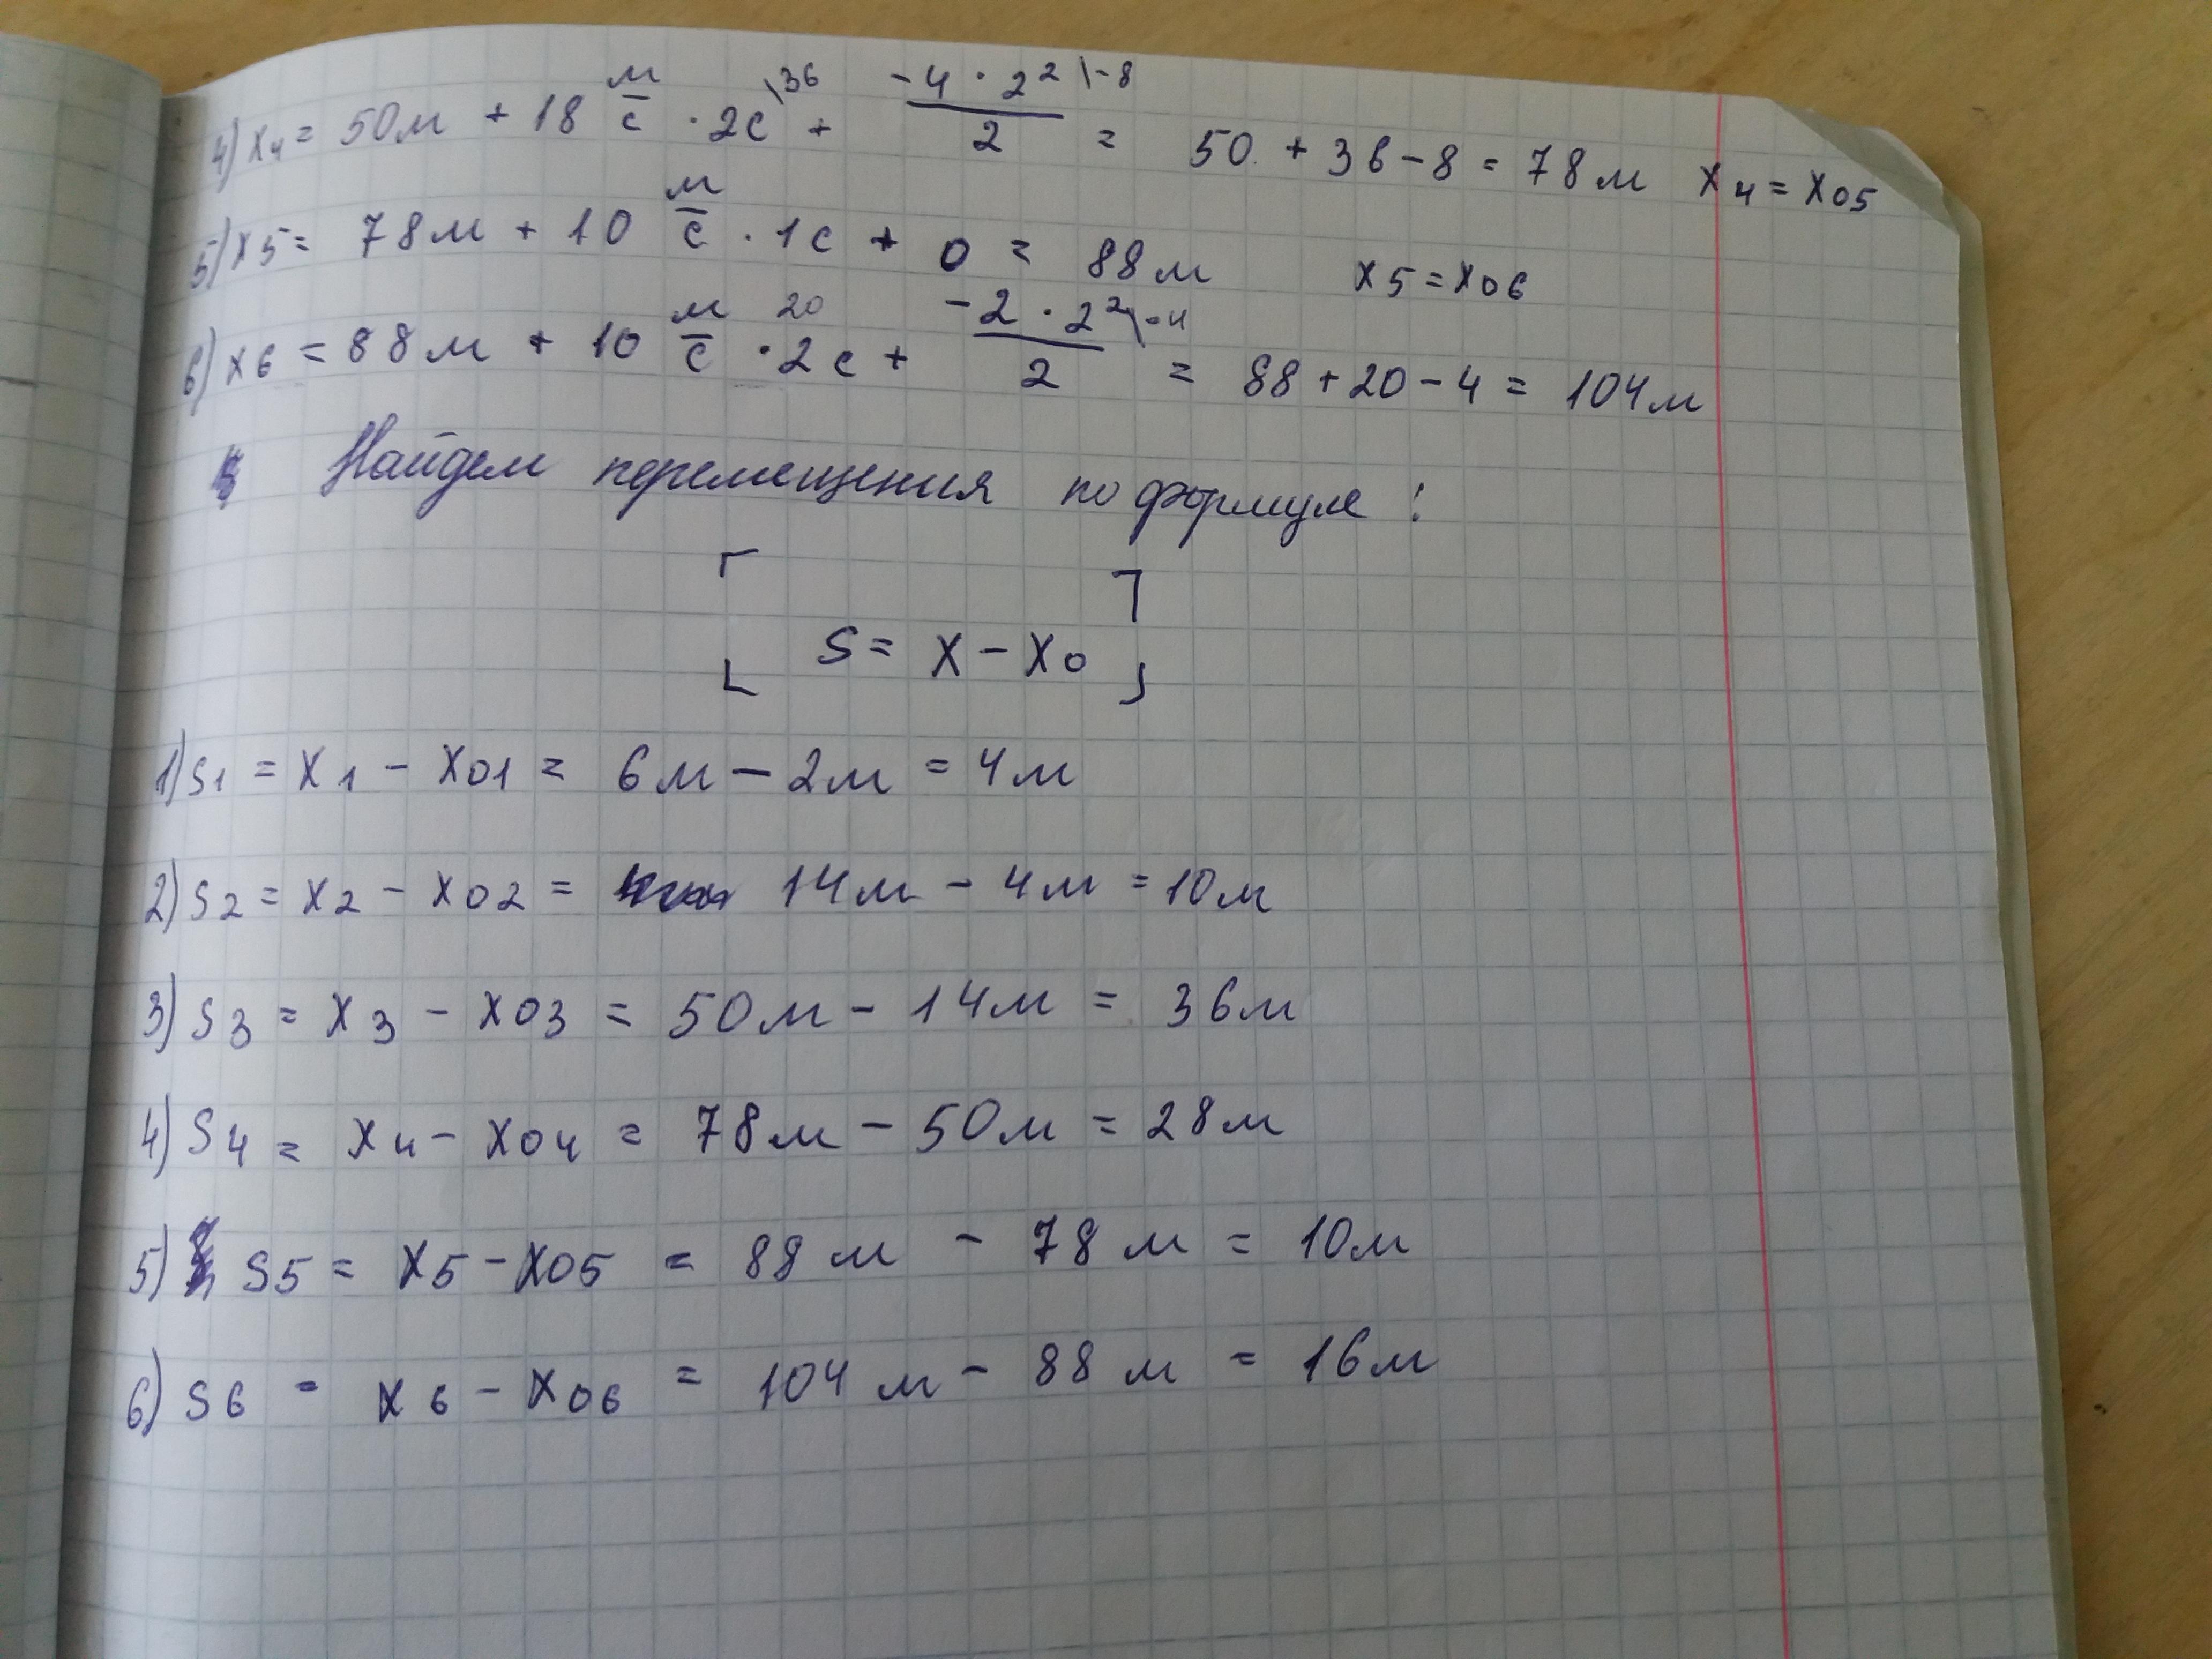 4) x4 = 50м + 18 м/с · 2с \36 + -4 · 2² / 2 \-8 = 50 + 36 - 8 = 78м x4 = x05
5) x5 = 78м + 10 м/с · 1с + 0 = 88м x5 = x06
6) x6 = 88м + 10 м/с · 2с 20 + -2 · 2² / 2 \-4 = 88 + 20 - 4 = 104м
Найдем перемещения по формуле :
S = x - x0
1) S1 = x1 - x01 = 6м - 2м = 4м
2) S2 = x2 - x02 = 14м - 4м = 10м
3) S3 = x3 - x03 = 50м - 14м = 36м
4) S4 = x4 - x04 = 78м - 50м = 28м
5) S5 = x5 - x05 = 88м - 78м = 10м
6) S6 = x6 - x06 = 104м - 88м = 16м